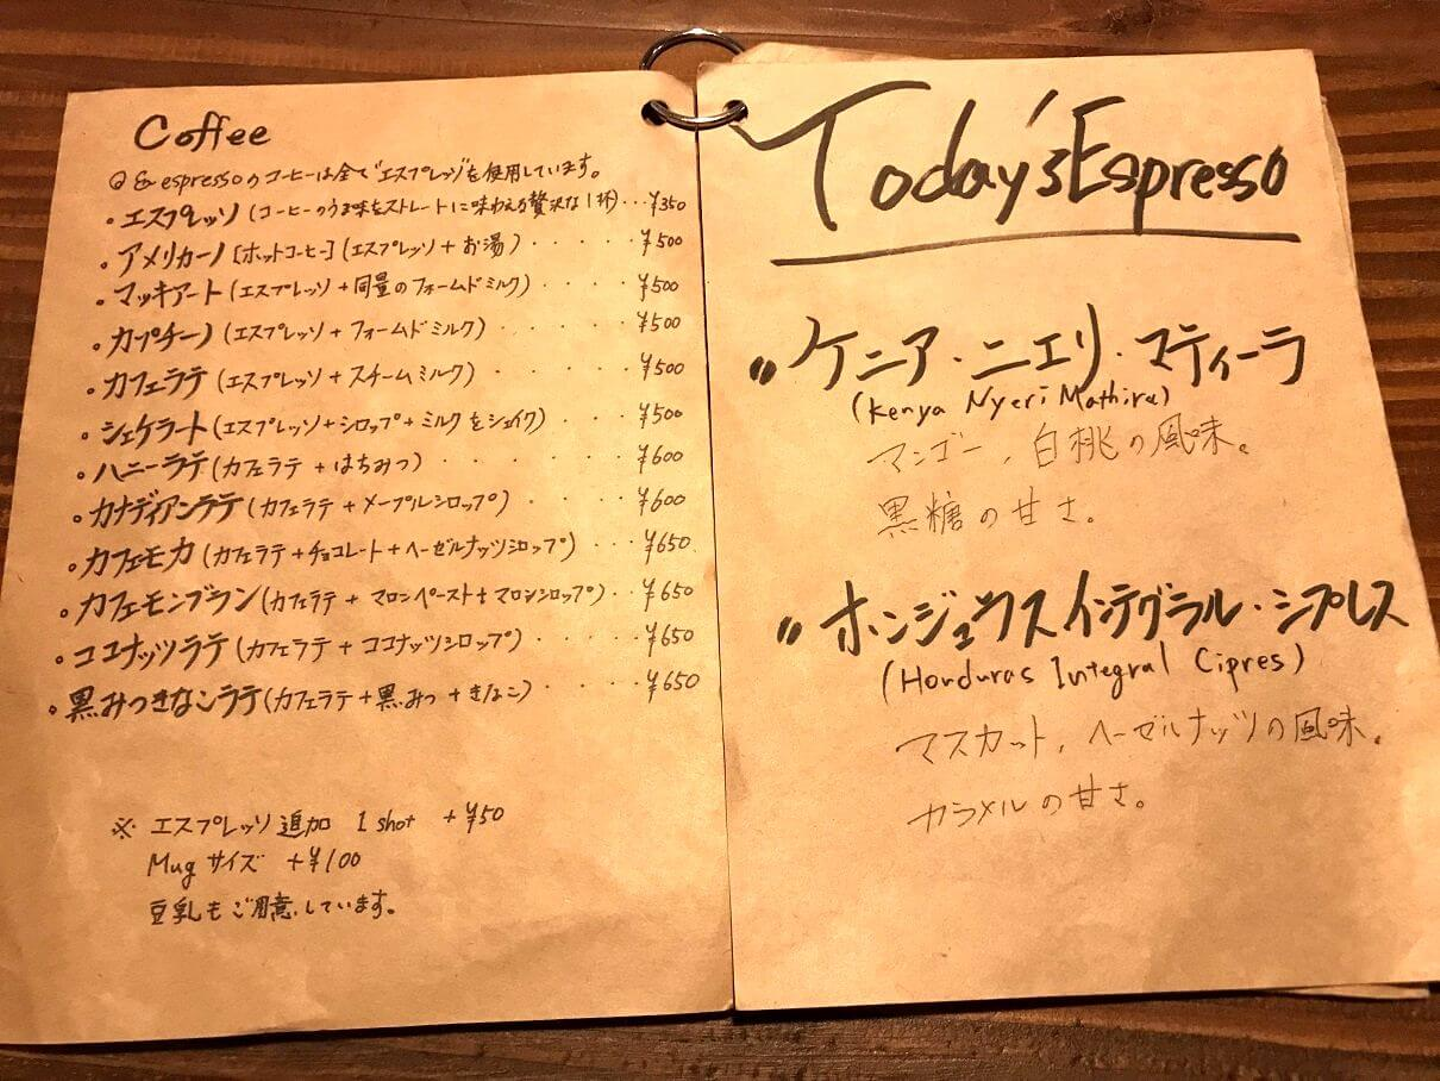 Coffee
◎ & espressoのコーヒーは全て"エスプレッソ"を使用しています。
・エスプレッソ (コーヒーのうま味をストレートに味わえる贅沢な1杯)・・・¥350
・アメリカーノ [ホットコーヒー] (エスプレッソ + お湯) ・・・・・¥500
・マッキアート (エスプレッソ + 同量のフォームドミルク) ・・・・¥500
・カプチーノ (エスプレッソ + フォームドミルク) ・・・・・・¥500
・カフェラテ (エスプレッソ + スチームミルク) ・・・・・・¥500
・シェケラート (エスプレッソ + シロップ + ミルクをシェイク) ・・・・¥500
・ハニーラテ (カフェラテ + はちみつ) ・・・・・・・¥600
・カナディアンラテ (カフェラテ + メープルシロップ) ・・・・¥600
・カフェモカ (カフェラテ + チョコレート + ヘーゼルナッツシロップ) ・・・¥650
・カフェモンブラン (カフェラテ + マロンペースト + マロンシロップ)・・¥650
・ココナッツラテ (カフェラテ + ココナッツシロップ) ・・・・・¥650
・黒みつきなこラテ (カフェラテ + 黒みつ + きなこ) ・・・・・¥650
※ エスプレッソ追加 1 shot +¥50
Mugサイズ +¥100
豆乳もご用意しています。
Today's Espresso
〃ケニア・ニエリ・マティーラ
(Kenya Nyeri Mathira)
マンゴー、白桃の風味。
黒糖の甘さ。
〃ホンジュラス インテグラル・シプレス
(Honduras Integral Cipres)
マスカット、ヘーゼルナッツの風味。
カラメルの甘さ。